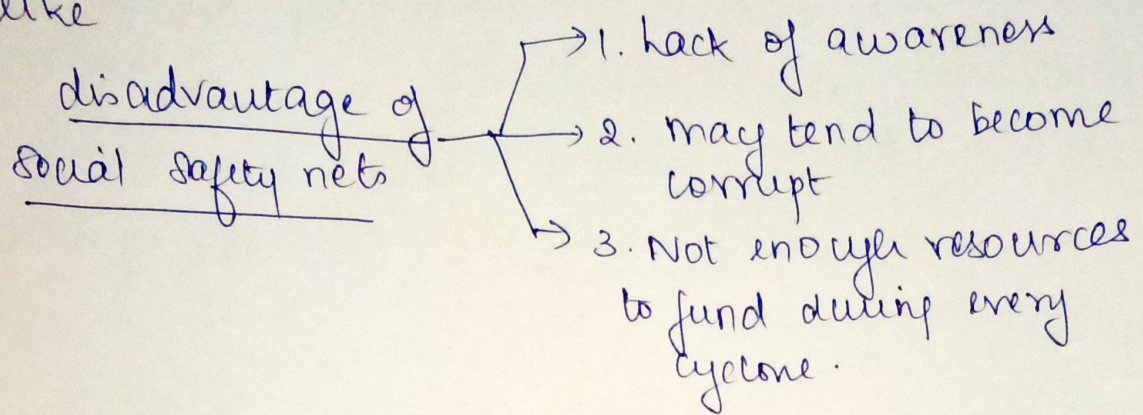 like
disadvantage of
social safety nets
1. Lack of awareness
2. may tend to become
corrupt
3. Not enough resources
to fund during every
cyclone.